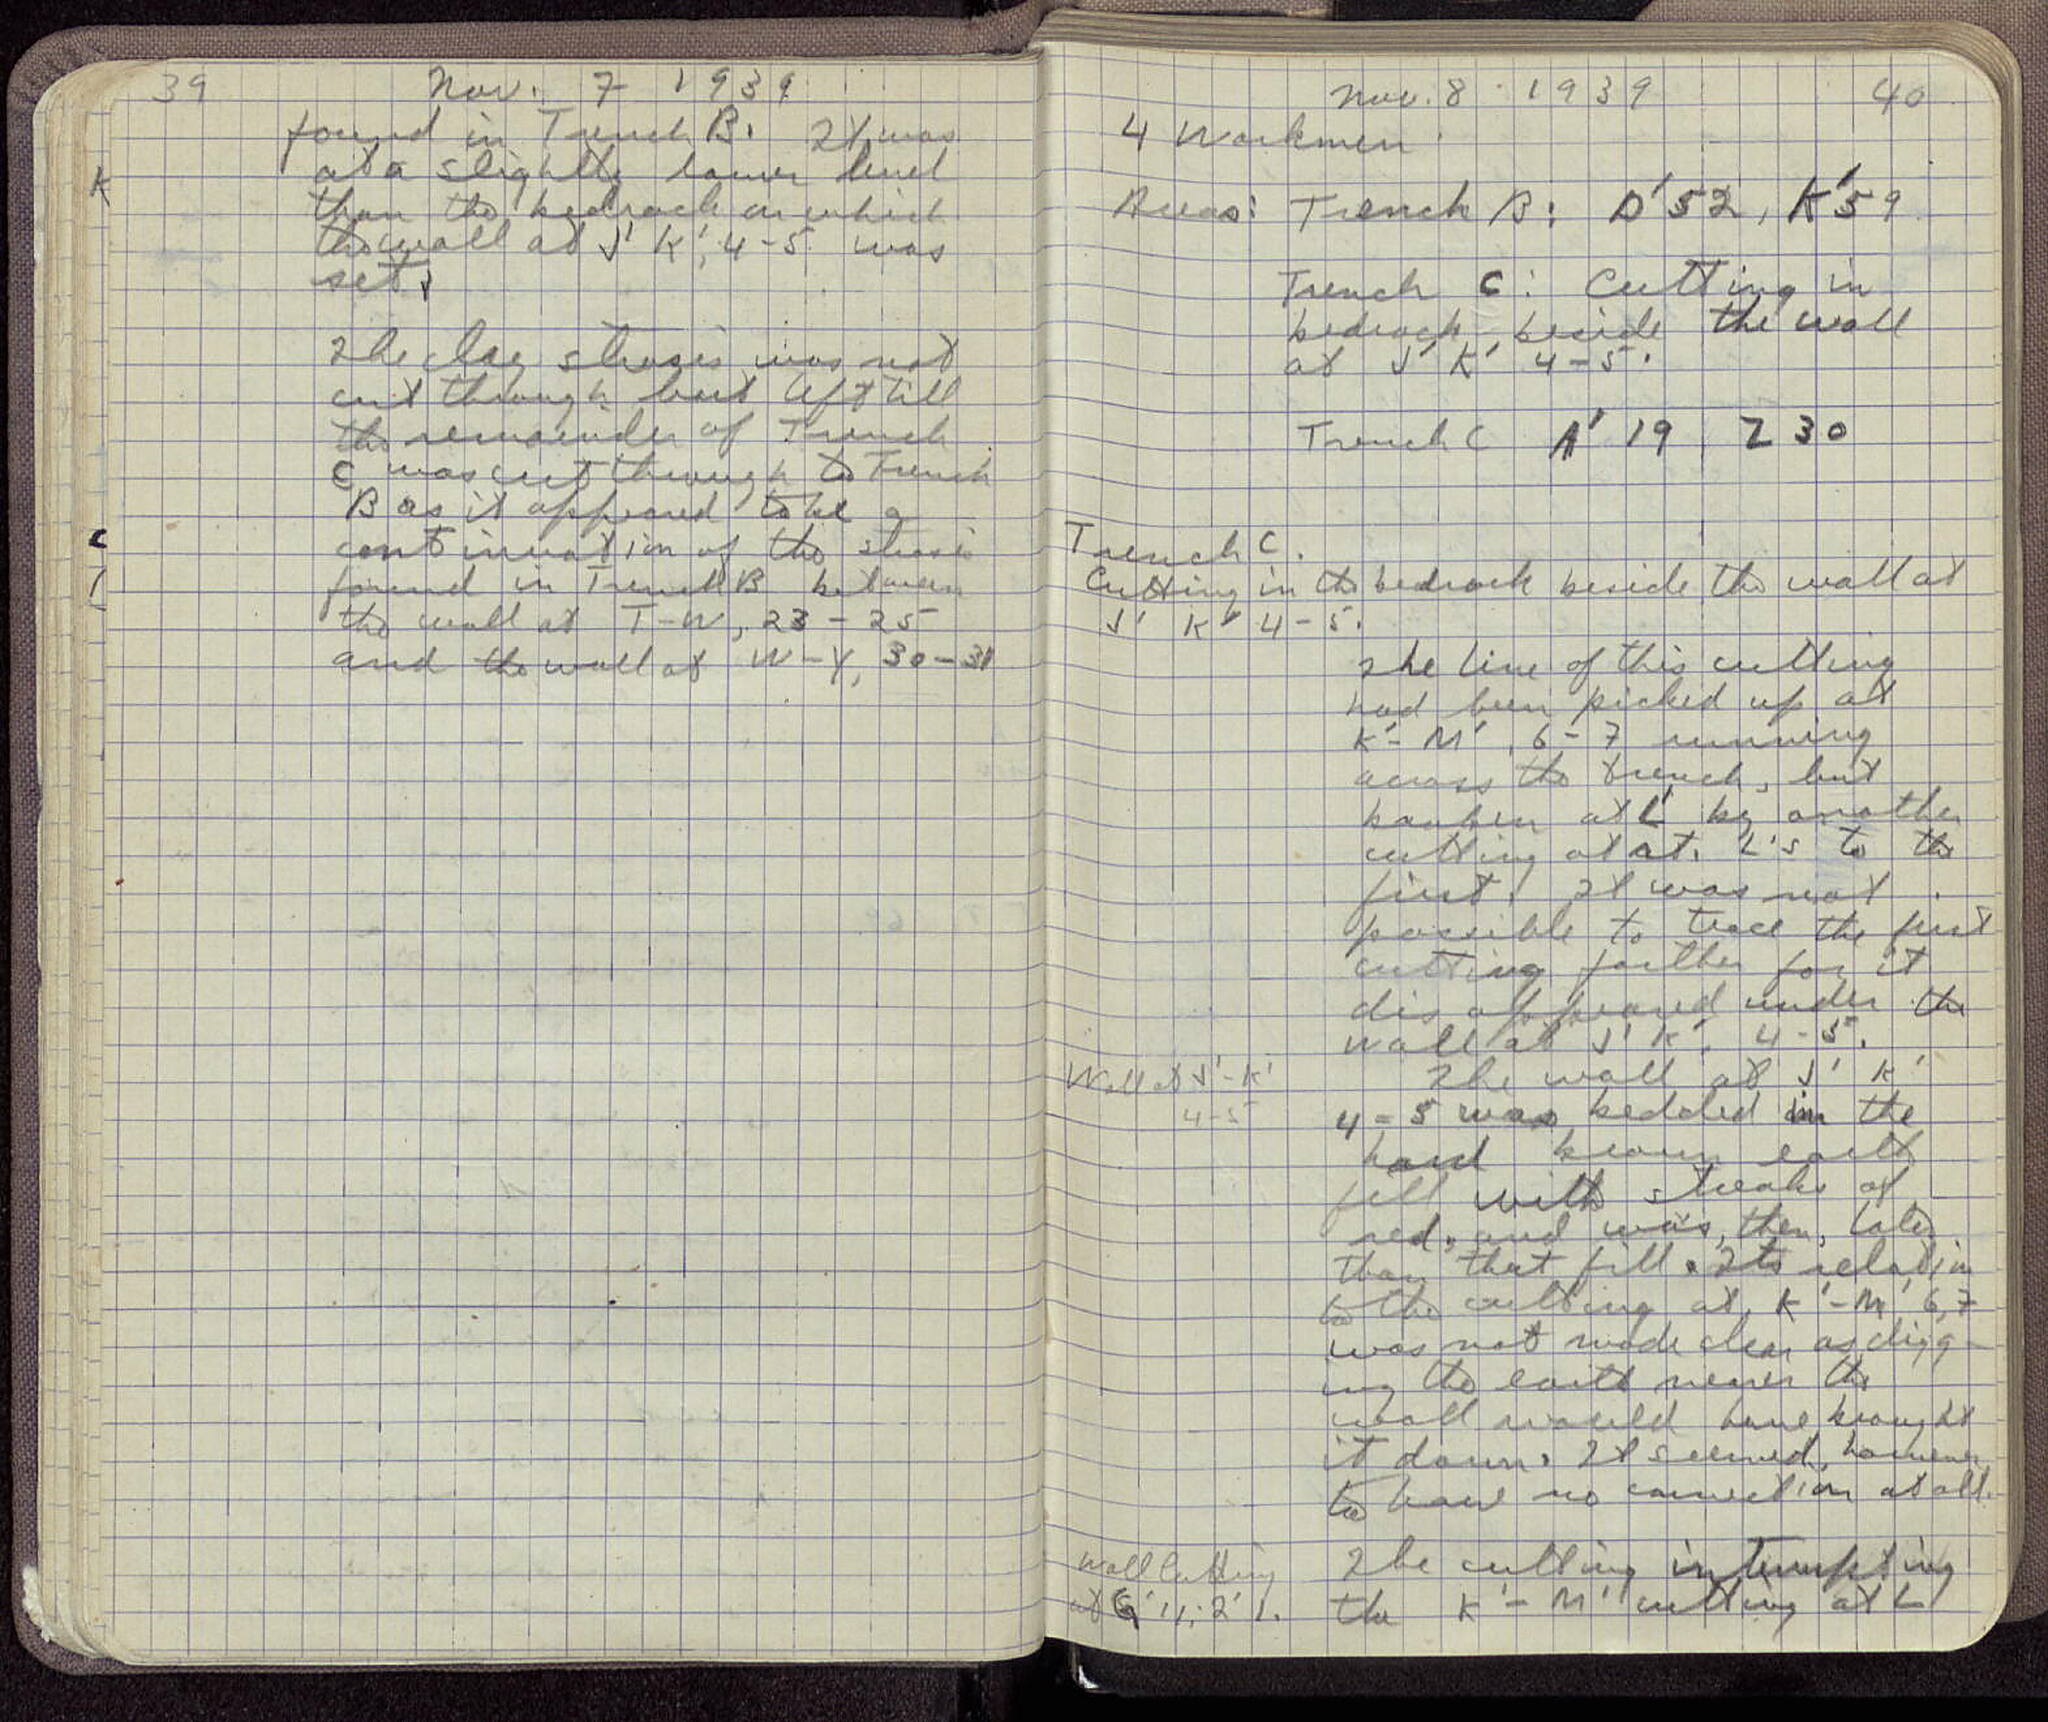 39 Nov. 7 1939
found in Trench B. It was
at a slightly lower level
than the bedrock on which
the wall at J' K', 4-5 was
set.
The clay strosis was not
cut through but left till
the remainder of Trench
C was cut through to Trench
B as it appeared to be a
continuation of the strosis
found in Trench B between
the wall at T-W, 23-25
and the wall at W-Y, 30-31
K
C
Nov. 8 1939 40
4 Workmen
Areas: Trench B: D'52, K'59
Trench C: Cutting in
bedrock beside the wall
at J' K' 4-5.
Trench C A' 19, Z 30
Trench C.
Cutting in the bedrock beside the wall at
J' K' 4-5.
The line of this cutting
had been picked up at
K'-M', 6-7 running
across the trench, but
broken at L' by another
cutting at rt. L's to the
first. It was not
possible to trace the first
cutting farther for it
disappeared under the
wall at J' K', 4-5.
Wall at J'-K'
4-5
The wall at J' K'
4-5 was bedded in the
hard brown earth
fill with streaks of
red, and was, then, later
than that fill. Its relation
to the cutting at K'-M' 6,7
was not made clear as digg-
ing the earth nearer the
wall would have brought
it down. It seemed, however
to have no connection at all.
Wall Cutting
at G' 11,
The cutting interrupting
the K'-M' cutting at L'